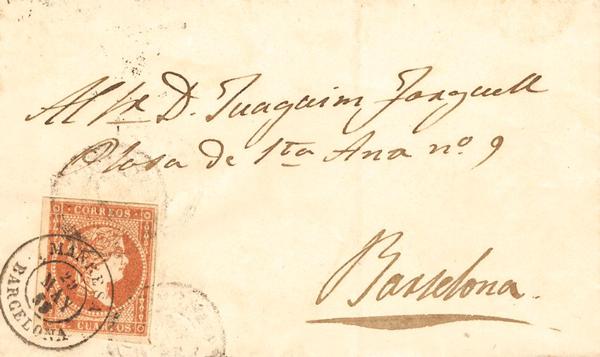 Al Sr. D. Juaquim
Plasa de Sta Ana nº 9
Barselona.
CORREOS
CUARTOS
MANRESA
BARCELONA
MAY